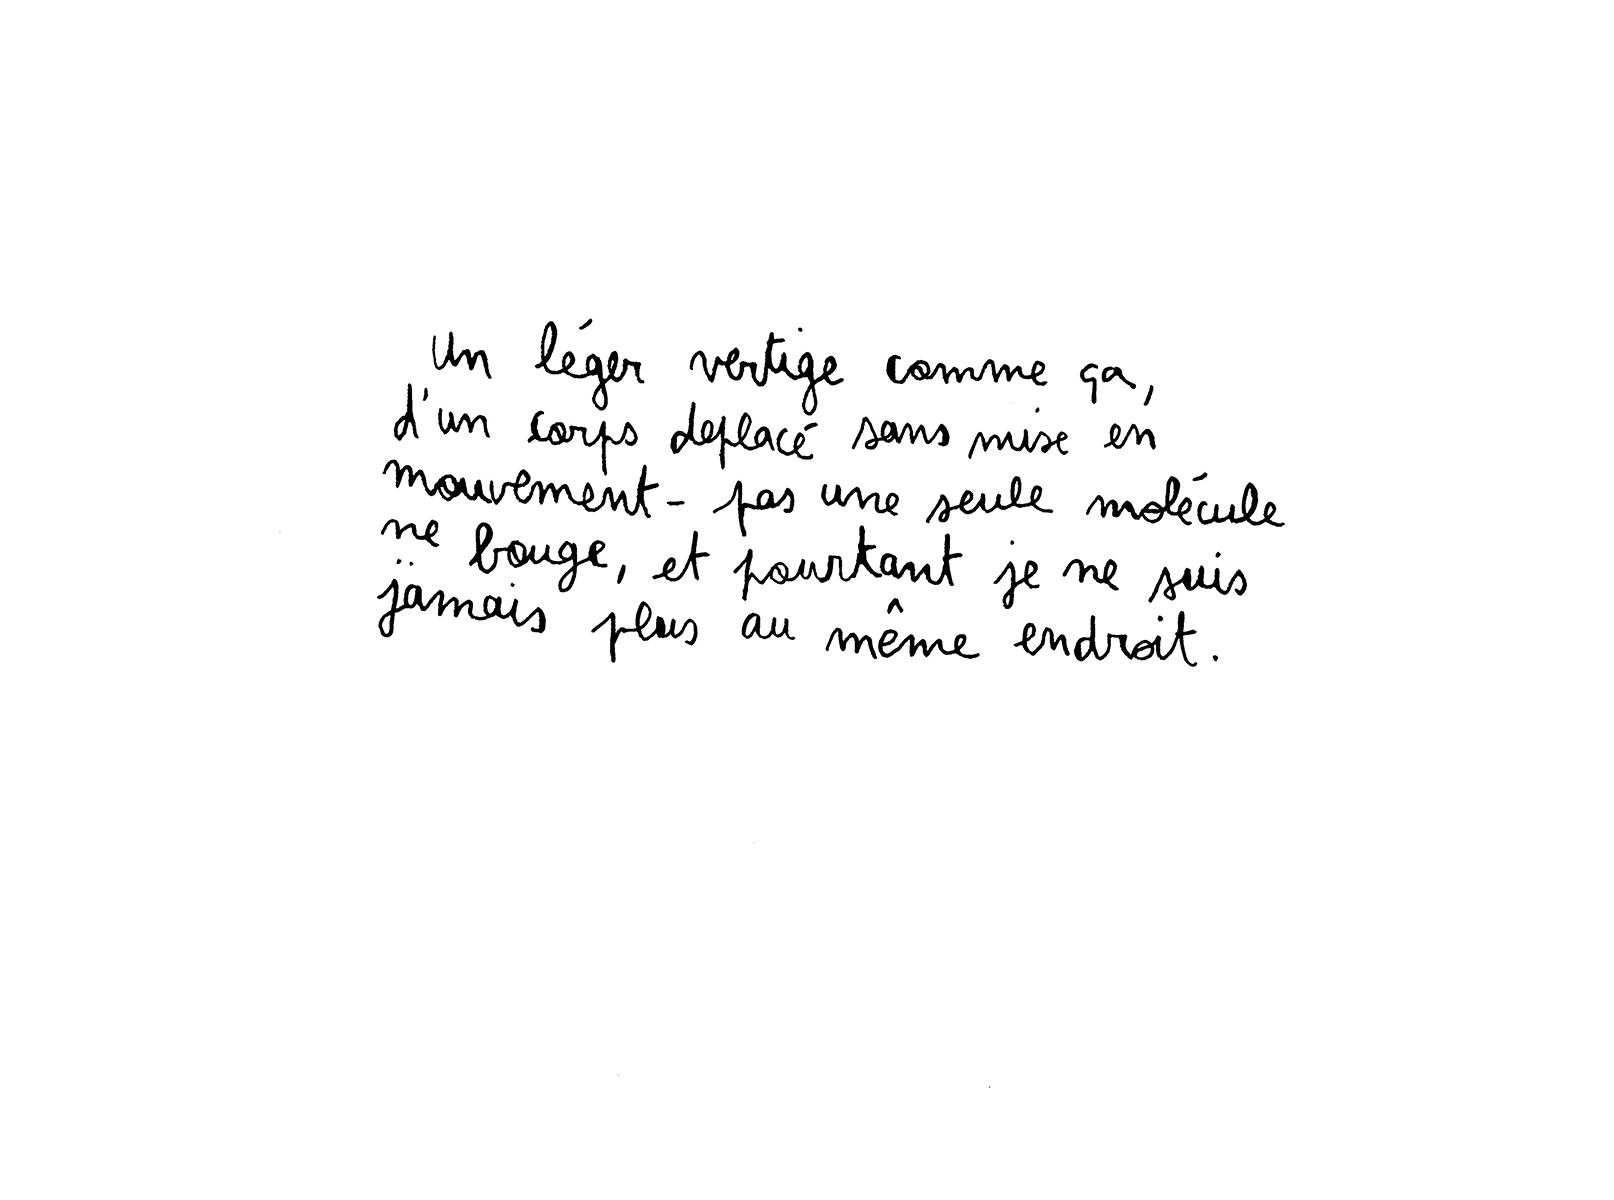 Un léger vertige comme ça,
d'un corps deplacé sans mise en
mouvement - pas une seule molécule
ne bouge, et pourtant je ne suis
jamais plus au même endroit.